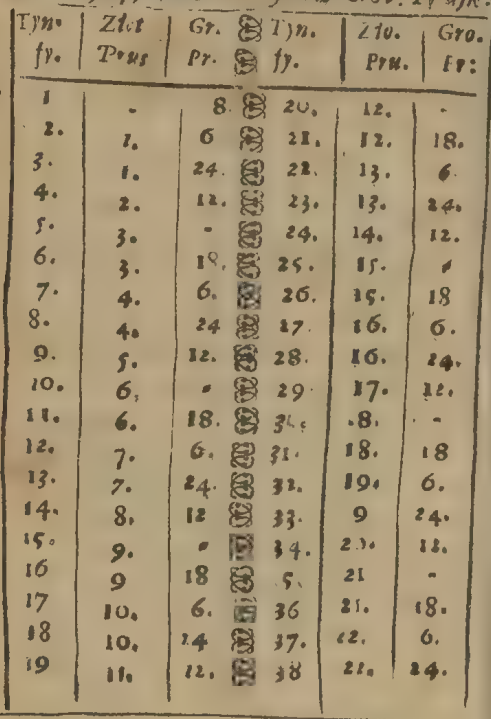 Tyn. Złot Gr. Tyn. Zło. Gro.
fy. Prus Pr. fy. Pru. Pr:
1 - 8. 20. 12. -
2. 1. 6 21. 12. 18.
3. 1. 24. 22. 13. 6.
4. 2. 12. 23. 13. 24.
5. 3. - 24. 14. 12.
6. 3. 18. 25. 15. -
7. 4. 6. 26. 15. 18
8. 4. 24 27. 16. 6.
9. 5. 12. 28. 16. 24.
10. 6. - 29 17. 12.
11. 6. 18. .8. -
12. 7. 6. 31. 18. 18
13. 7. 24. 32. 19. 6.
14. 8. 12 33. 9 24.
15. 9. - 34. 12.
16 9 18 5. 21 -
17 10. 6. 36 21. 18.
18 10. 24 37. 22. 6.
19 11. 12. 38 22. 24.